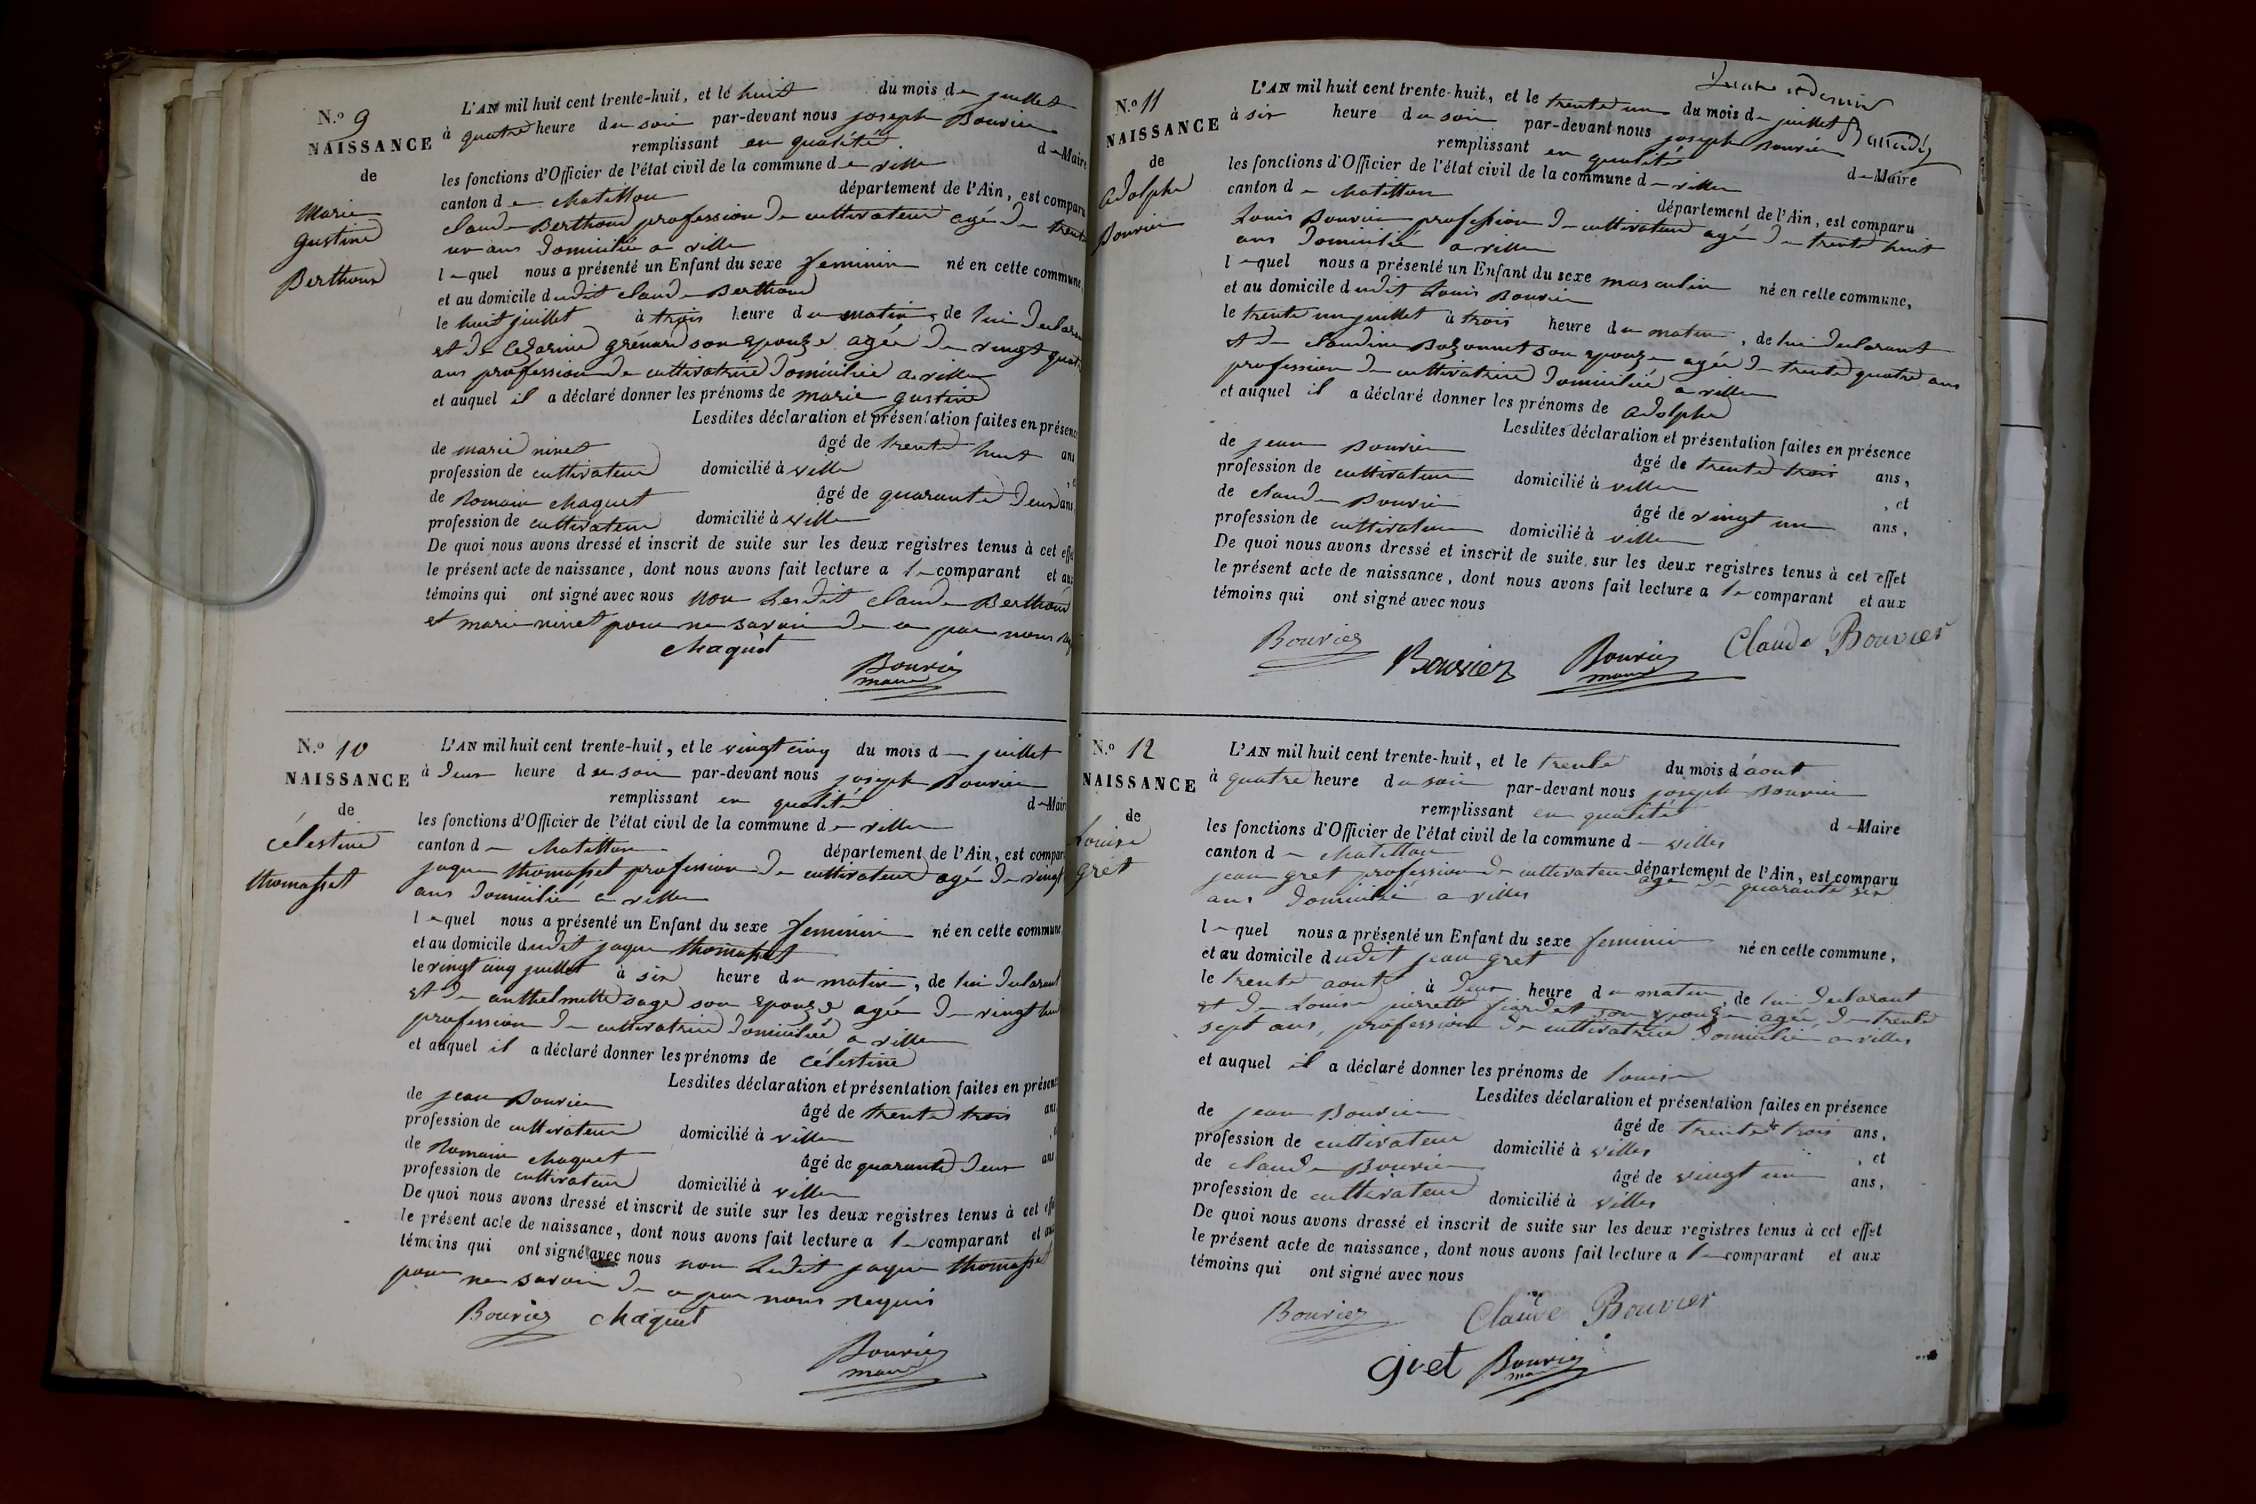 N.o 9
NAISSANCE
de
Marie
gustine
Berthoud
L'AN mil huit cent trente-huit, et le huit du mois de juillet
à quatre heure du soir par-devant nous joseph Bouvier
remplissant en qualité de Maire
les fonctions d'Officier de l'état civil de la commune de ville
canton de chatillon département de l'Ain, est comparu
claude Berthoud profession de cultivateur agé de trente
un ans domicilié a ville
lequel nous a présenté un Enfant du sexe feminin né en cette commune,
et au domicile dudit claude Berthoud
le huit juillet à trois heure du matin, de lui declarant
et de Cezarine grenard son epouze agée de vingt quatre
ans profession de cultivatrice domiciliée a ville
et auquel il a déclaré donner les prénoms de marie gustine
Lesdites déclaration et présentation faites en présence
de marie ninet âgé de trente huit ans
profession de cultivateur domicilié à ville
de Romain chaquet âgé de quarante deux ans
profession de cultivateur domicilié à ville
De quoi nous avons dressé et inscrit de suite sur les deux registres tenus à cet effet
le présent acte de naissance, dont nous avons fait lecture a le comparant et aux
témoins qui ont signé avec nous non lesdit claude Berthoud
et marie ninet pour ne savoir de ce par nous
chaquet
Bouvier
maire
N.o 10
NAISSANCE
de
célestine
thomasset
L'AN mil huit cent trente-huit, et le vingt cinq du mois de juillet
à deux heure du soir par-devant nous joseph Bouvier
remplissant en qualité de Maire
les fonctions d'Officier de l'état civil de la commune de ville
canton de chatillon département de l'Ain, est comparu
jaque thomasset profession de cultivateur agé de vingt
ans domicilié a ville
lequel nous a présenté un Enfant du sexe feminin né en cette commune
et au domicile dudit jaque thomasset
le vingt cinq juillet à six heure du matin, de lui declarant
et de anthelmette sage son epouze agée de vingt
profession de cultivatrice domiciliée a ville
et auquel il a déclaré donner les prénoms de célestine
Lesdites déclaration et présentation faites en présence
de jean Bouvier âgé de trente trois ans
profession de cultivateur domicilié à ville
de Romain chaquet âgé de quarante deux ans
profession de cultivateur domicilié à ville
De quoi nous avons dressé et inscrit de suite sur les deux registres tenus à cet effet
le présent acte de naissance, dont nous avons fait lecture a le comparant et aux
témoins qui ont signé avec nous non ledit jaque thomasset
pour ne savoir de ce par nous requis
Bouvier chaquet
Bouvier
maire
N.o 11
NAISSANCE
de
adolphe
Bouvier
L'AN mil huit cent trente-huit, et le trente un du mois de juillet
à six heure du soir par-devant nous joseph Bouvier
remplissant en qualité de Maire
les fonctions d'Officier de l'état civil de la commune de ville
canton de chatillon département de l'Ain, est comparu
Louis Bouvier profession de cultivateur agé de trente huit
ans domicilié a ville
lequel nous a présenté un Enfant du sexe masculin né en cette commune,
et au domicile dudit Louis Bouvier
le trente un juillet à trois heure du matin, de lui declarant
et de claudine Bozonnet son epouze agée de trente quatre ans
profession de cultivatrice domiciliée a ville
et auquel il a déclaré donner les prénoms de adolphe
Lesdites déclaration et présentation faites en présence
de jean Bouvier âgé de trente trois ans,
profession de cultivateur domicilié à ville, et
de claude Bouvier âgé de vingt un ans,
profession de cultivateur domicilié à ville
De quoi nous avons dressé et inscrit de suite sur les deux registres tenus à cet effet
le présent acte de naissance, dont nous avons fait lecture a le comparant et aux
témoins qui ont signé avec nous
Bouvier Bouvier Bouvier Claude Bouvier
maire
N.o 12
NAISSANCE
de
Louise
gret
L'AN mil huit cent trente-huit, et le trente du mois d'aout
à quatre heure du soir par-devant nous joseph Bouvier
remplissant en qualité de Maire
les fonctions d'Officier de l'état civil de la commune de villes
canton de chatillon département de l'Ain, est comparu
jean gret profession de cultivateur agé de quarante six
ans domicilié a villes
lequel nous a présenté un Enfant du sexe feminin né en cette commune,
et au domicile dudit jean gret
le trente aout à deux heure du matin, de lui declarant
et de Louise pierrette son epouze agée de trente
sept ans, profession de cultivatrice domiciliée a villes
et auquel il a déclaré donner les prénoms de louise
Lesdites déclaration et présentation faites en présence
de jean Bouvier âgé de trente trois ans,
profession de cultivateur domicilié à villes, et
de claude Bouvier âgé de vingt un ans,
profession de cultivateur domicilié à villes
De quoi nous avons dressé et inscrit de suite sur les deux registres tenus à cet effet
le présent acte de naissance, dont nous avons fait lecture a le comparant et aux
témoins qui ont signé avec nous
Bouvier Claude Bouvier
gret Bouvier
maire